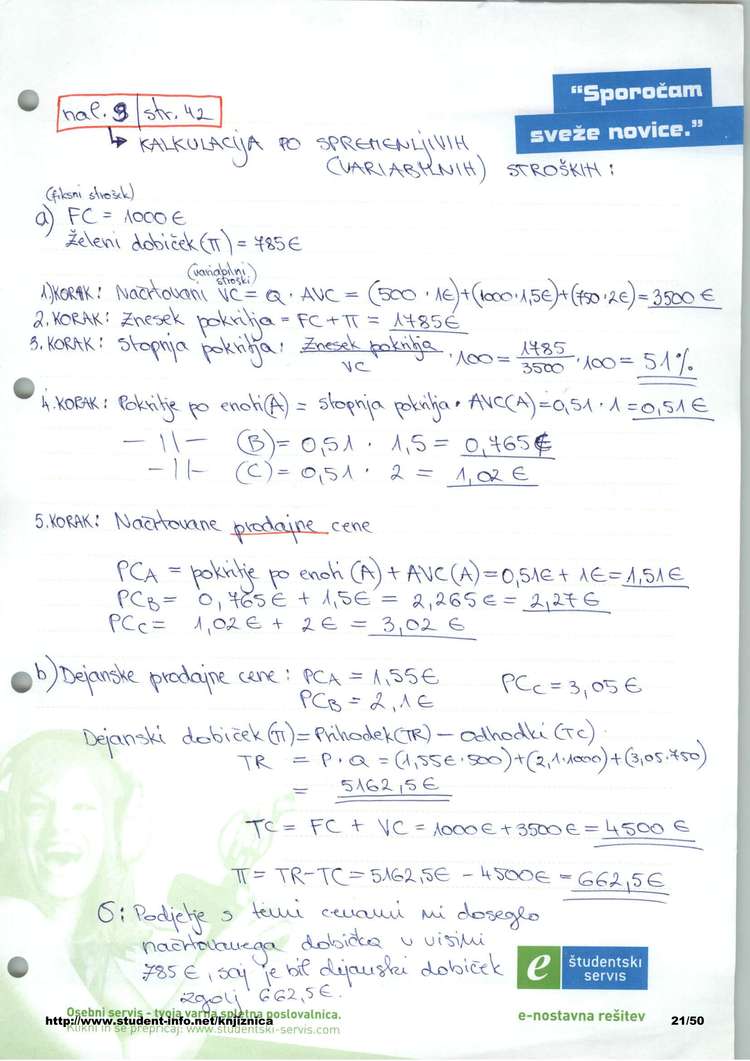 "Sporočam
sveže novice."
nal. 9 | str. 42
↳ KALKULACIJA PO SPREMENLJIVIH
(VARIABILNIH) STROŠKIH:
(fiksni strošek)
a) FC = 1000 €
Želeni dobiček (π) = 785 €
(variabilni stroški)
1) KORAK: Načrtovani VC = Q · AVC = (500 · 1€)+(1000·1,5€)+(750·2€)=3500 €
2. KORAK: Znesek pokritja = FC + π = 1785 €
3. KORAK: Stopnja pokritja: Znesek pokritja / VC · 100 = 1785 / 3500 · 100 = 51%
4. KORAK: Pokritje po enoti (A) = stopnja pokritja · AVC(A)=0,51 · 1=0,51 €
— 11 — (B) = 0,51 · 1,5 = 0,765 €
— 11 — (C) = 0,51 · 2 = 1,02 €
5. KORAK: Načrtovane prodajne cene
PCA = pokritje po enoti (A) + AVC(A)=0,51€ + 1€=1,51€
PCB = 0,765 € + 1,5€ = 2,265 € = 2,27 €
PCC = 1,02 € + 2€ = 3,02 €
b) Dejanske prodajne cene: PCA = 1,55€ PCC = 3,05 €
PCB = 2,1 €
Dejanski dobiček (π)=Prihodek(TR) – odhodki (TC)
TR = P · Q = (1,55€·500)+(2,1·1000)+(3,05·750)
= 5162,5€
TC = FC + VC = 1000€ + 3500€ = 4500 €
π = TR-TC = 5162,5€ - 4500€ = 662,5€
O: Podjetje s temi cenami ni doseglo
načrtovanega dobička v višini
785 €, saj je bil dejanski dobiček
zgolj 662,5€.
e študentski
servis
e-nostavna rešitev
Osebni servis - tvoja varna spletna poslovalnica.
http://www.student-info.net/knjiznica
Klikni in se prepričaj: www.studentski-servis.com
21/50